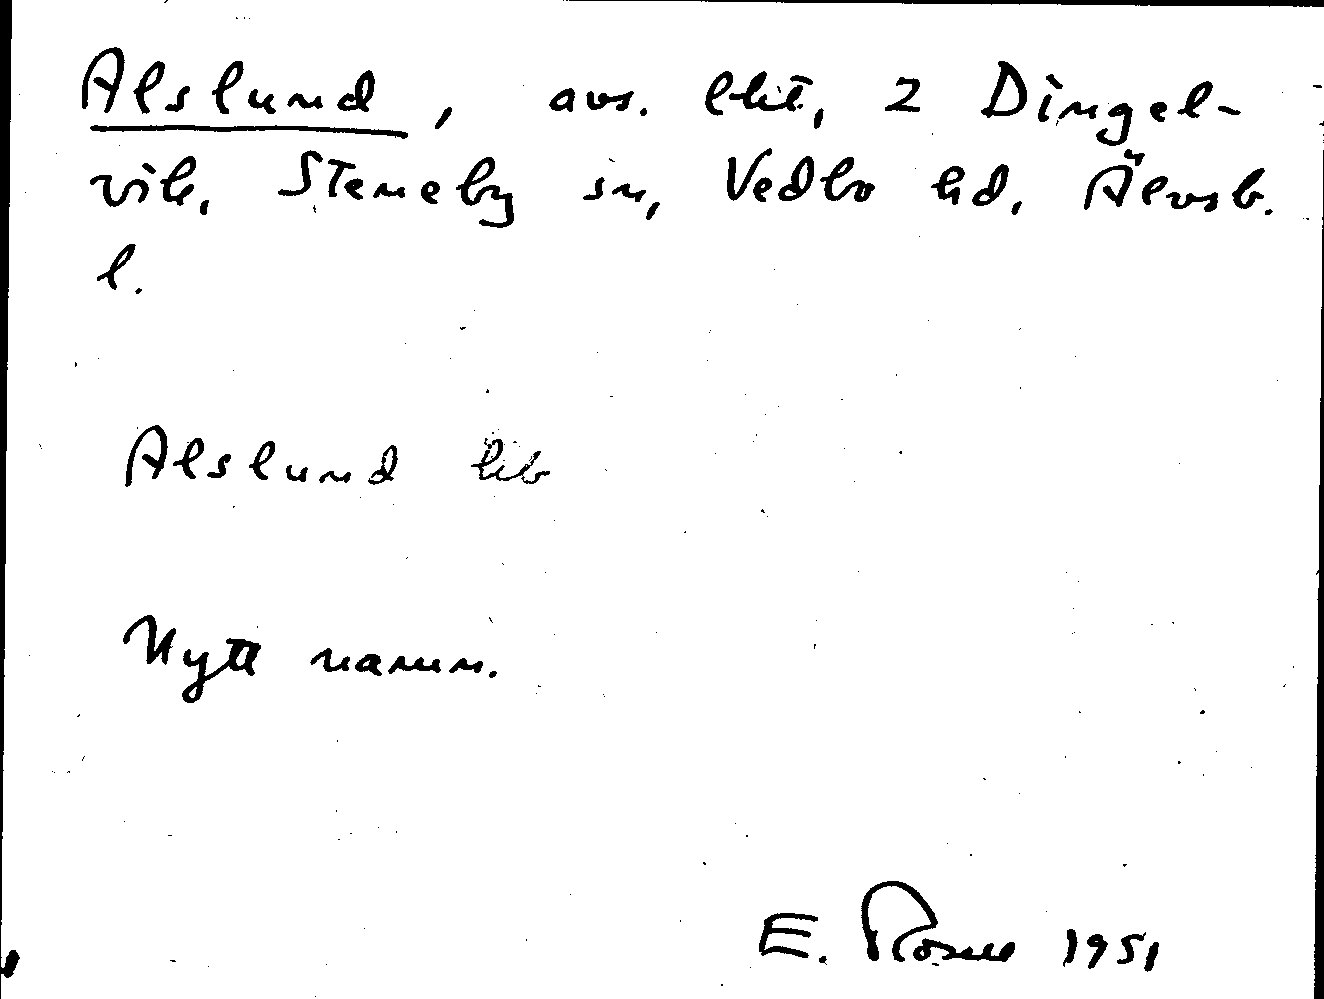 Alslund, avs. lht, 2 Dingel-
vik, Steneby sn, Vedbo hd, Älvsb.
l.
Alslund
Nytt namn.
E. Rosell 1951